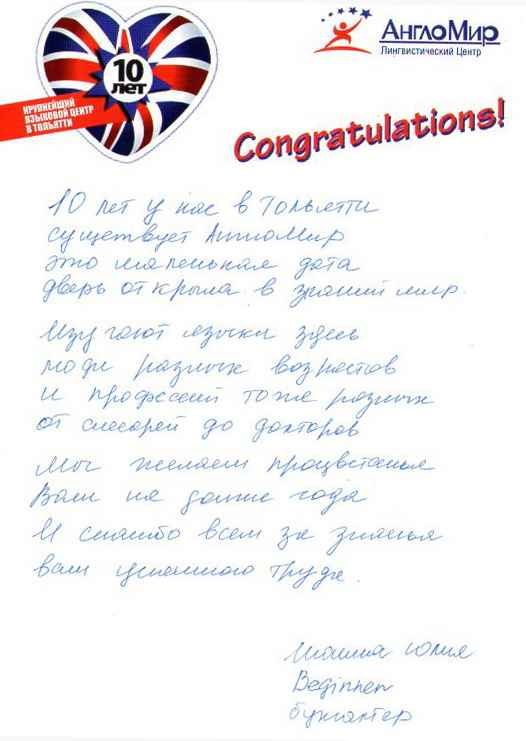 10 лет
КРУПНЕЙШИЙ
ЯЗЫКОВОЙ ЦЕНТР
В ТОЛЬЯТТИ
АнглоМир
Лингвистический Центр
Congratulations!
10 лет у нас в Тольятти
существует АнглоМир
это маленькая дата
дверь открыла в знаний мир.
Изучают языки здесь
люди разных возрастов
и профессий тоже разных
от слесарей до докторов
Мы желаем процветанья
Вам на долгие года
И спасибо всем за знанья
вам успешного труда.
Юлия
Beginner
бухгалтер